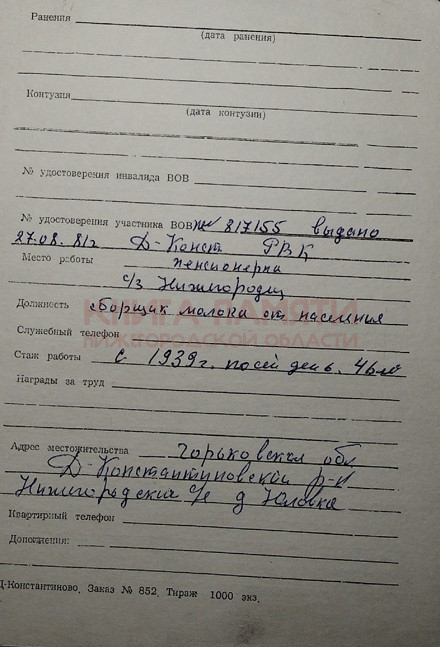 Ранения
(дата ранения)
Контузия
(дата контузии)
№ удостоверения инвалида ВОВ
№ удостоверения участника ВОВ № 817155 выдано
27.08.81г Д-Конст РВК
Место работы пенсионерка
с/з Нижегородец
Должность сборщик молока от населения
КНИГА ПАМЯТИ
НИЖЕГОРОДСКОЙ ОБЛАСТИ
Служебный телефон
Стаж работы с 1939г. по сей день.
Награды за труд
Адрес местожительства горьковская обл
Д-Константиновский р-н
Нижегородский с/с д
Квартирный телефон
Дополнения:
Д-Константиново. Заказ № 852. Тираж 1000 экз.